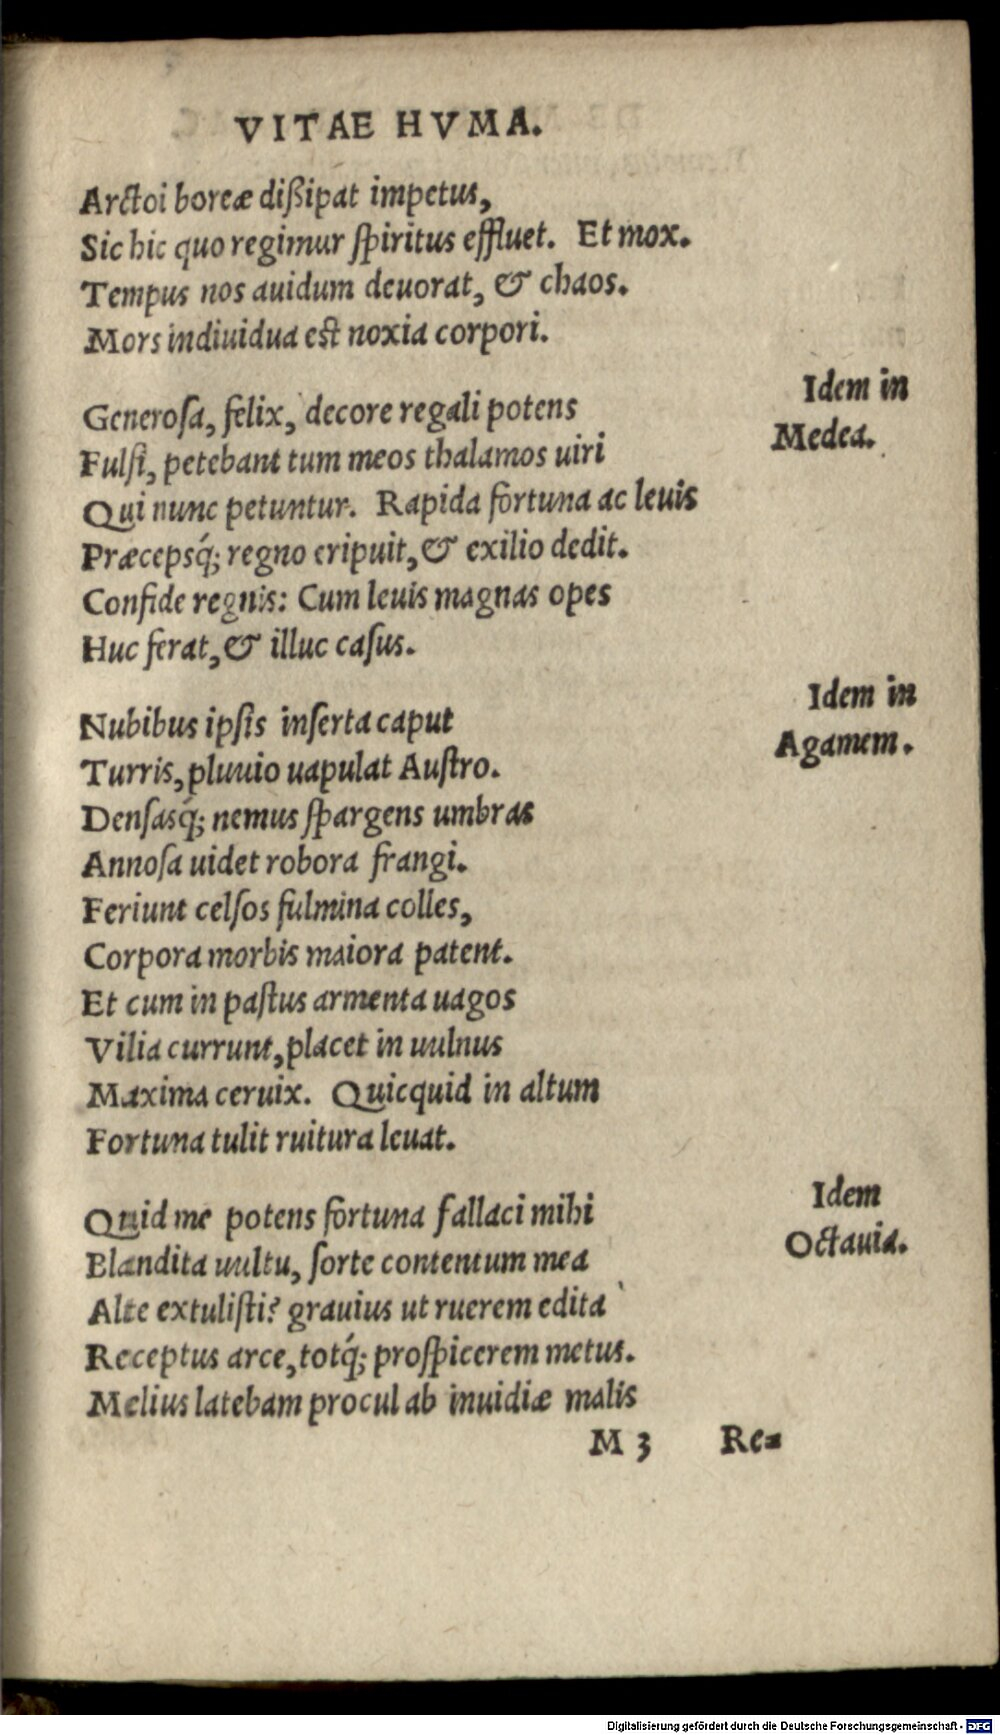 VITAE HVMA.
Arctoi boreæ dißipat impetus,
Sic hic quo regimur spiritus effluet. Et mox.
Tempus nos auidum deuorat, & chaos.
Mors indiuidua est noxia corpori.
Idem in
Generosa, felix, decore regali potens
Medea.
Fulsi, petebant tum meos thalamos uiri
Qui nunc petuntur. Rapida fortuna ac leuis
Præcepsq́; regno eripuit, & exilio dedit.
Confide regnis: Cum leuis magnas opes
Huc ferat, & illuc casus.
Idem in
Nubibus ipsis inserta caput
Agamem.
Turris, pluuio uapulat Austro.
Densasq́; nemus spargens umbras
Annosa uidet robora frangi.
Feriunt celsos fulmina colles,
Corpora morbis maiora patent.
Et cum in pastus armenta uagos
Vilia currunt, placet in uulnus
Maxima ceruix. Quicquid in altum
Fortuna tulit ruitura leuat.
Idem
Quid me potens fortuna fallaci mihi
Octauia.
Blandita uultu, sorte contentum mea
Alte extulisti? grauius ut ruerem edita
Receptus arce, totq́; prospicerem metus.
Melius latebam procul ab inuidiæ malis
M 3 Re=
Digitalisierung gefördert durch die Deutsche Forschungsgemeinschaft - DFG